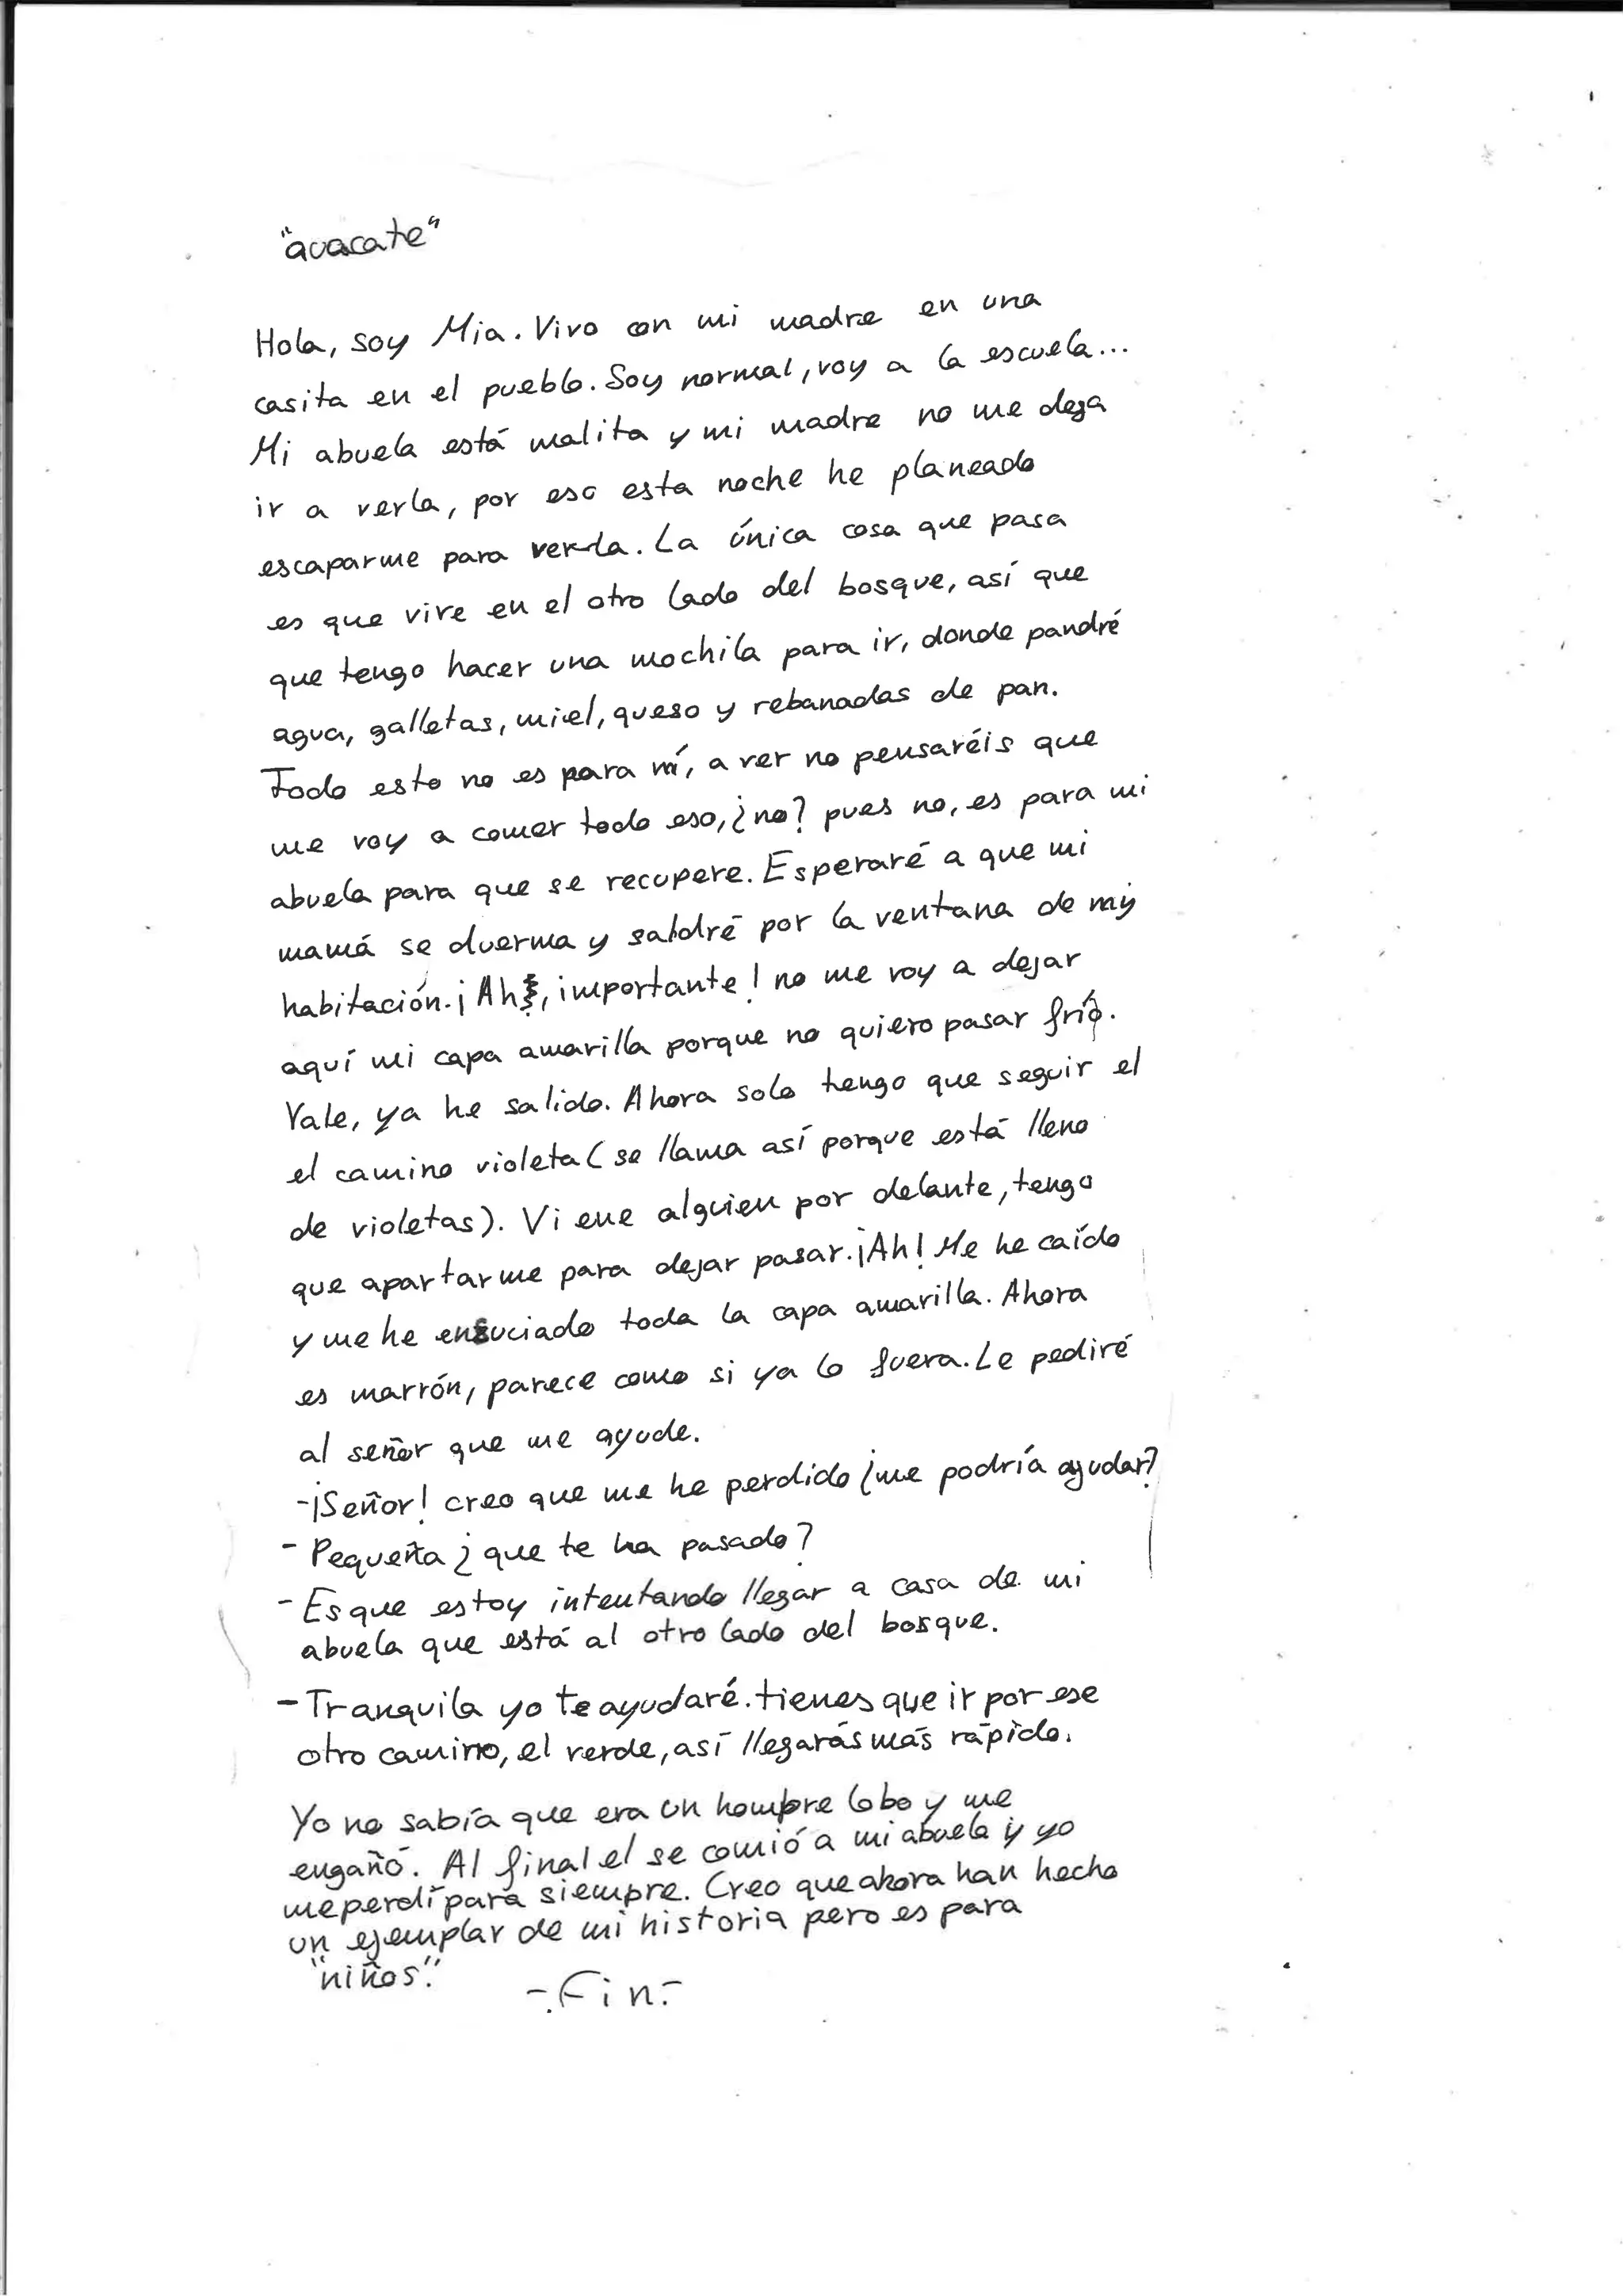 "avacate"
Hola, soy Mia. Vivo con mi madre en una
casita en el pueblo. Soy normal, voy a la escuela...
Mi abuela está malita y mi madre no me deja
ir a verla, por eso esta noche he planeado
escaparme para verla. La única cosa que pasa
es que vive en el otro lado del bosque, así que
que tengo hacer una mochila para ir, donde pandré
agua, galletas, miel, queso y rebanadas de pan.
Todo esto no es para mí, a ver no pensaréis que
me voy a comer todo eso, ¿no? pues no, es para mi
abuela para que se recupere. Esperaré a que mi
mamá se duerma y saldré por la ventana de mi
habitación. ¡Ah, importante! no me voy a dejar
aquí mi capa amarilla porque no quiero pasar frío.
Vale, ya he salido. Ahora solo tengo que seguir el
el camino violeta (se llama así porque está lleno
de violetas). Viene alguien por delante, tengo
que apartarme para dejar pasar. ¡Ah! Me he caído
y me he ensuciado toda la capa amarilla. Ahora
es marrón, parece como si ya lo fuera. Le pediré
al señor que me ayude.
-¡Señor! creo que me he perdido ¿me podría ayudar?
- Pequeña ¿que te ha pasado?
- Es que estoy intentando llegar a casa de mi
abuela que está al otro lado del bosque.
- Tranquila yo te ayudaré. tienes que ir por ese
otro camino, el verde, así llegarás más rápido.
Yo no sabía que era un hombre lobo y me
engañó. Al final el se comió a mi abuela y yo
me perdí para siempre. Creo que ahora han hecho
un ejemplar de mi historia pero es para
"niños".
-.Fin.-